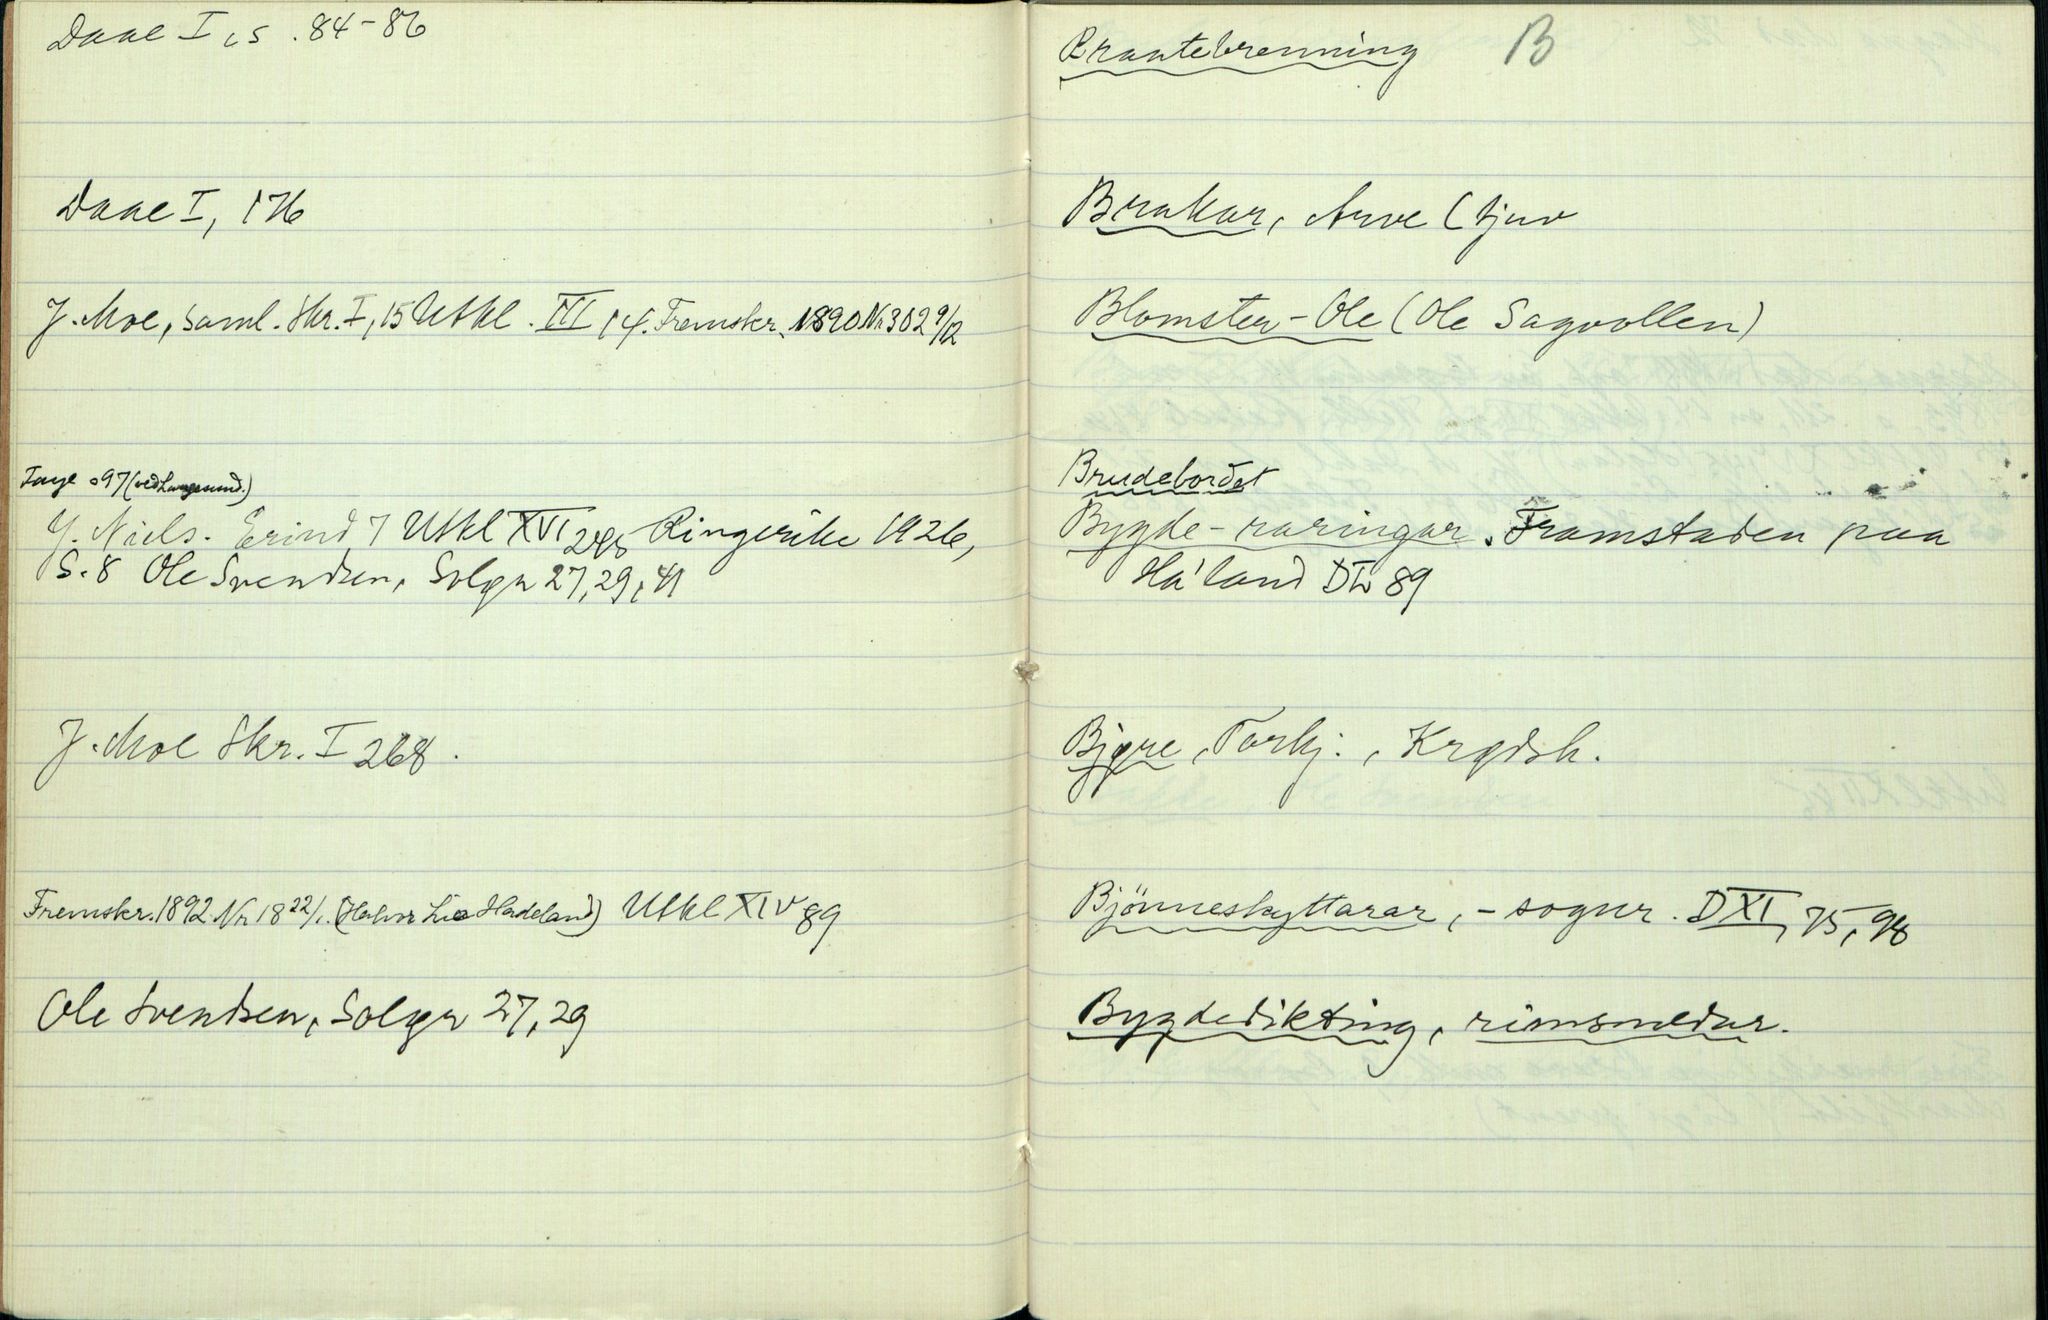 Daae I, s. 84-86
Daae I, 176
J. Moe, Saml. Skr. I, 15 Utkl. III 14. Fremskr. 1890 Nr 302 9/12
Faye s 97 (ved Langesund.)
Y. Niels. Erind 7 Utkl XVI 285 Ringerike 1926,
S. 8 Ole Svendsen, Solgr 27, 29, 41
J. Moe Skr. I 268.
Fremskr. 1892 Nr 18 22/1. (Halvor Lie Hadeland) Utkl XIV 89
Ole Svendsen, Solgr 27, 29
B
Brantebrenning
Brakar, Arve (tjuv
Blomster-Ole (Ole Sagvollen)
Brudebordet
Bygde-raringar. Framstaden paa
Håland 89
Bjøre, Torkj., Krødsh.
Bjönneskyttarar, - sogur. D XI, 75, 98
Bygdedikting, rimsmedar.